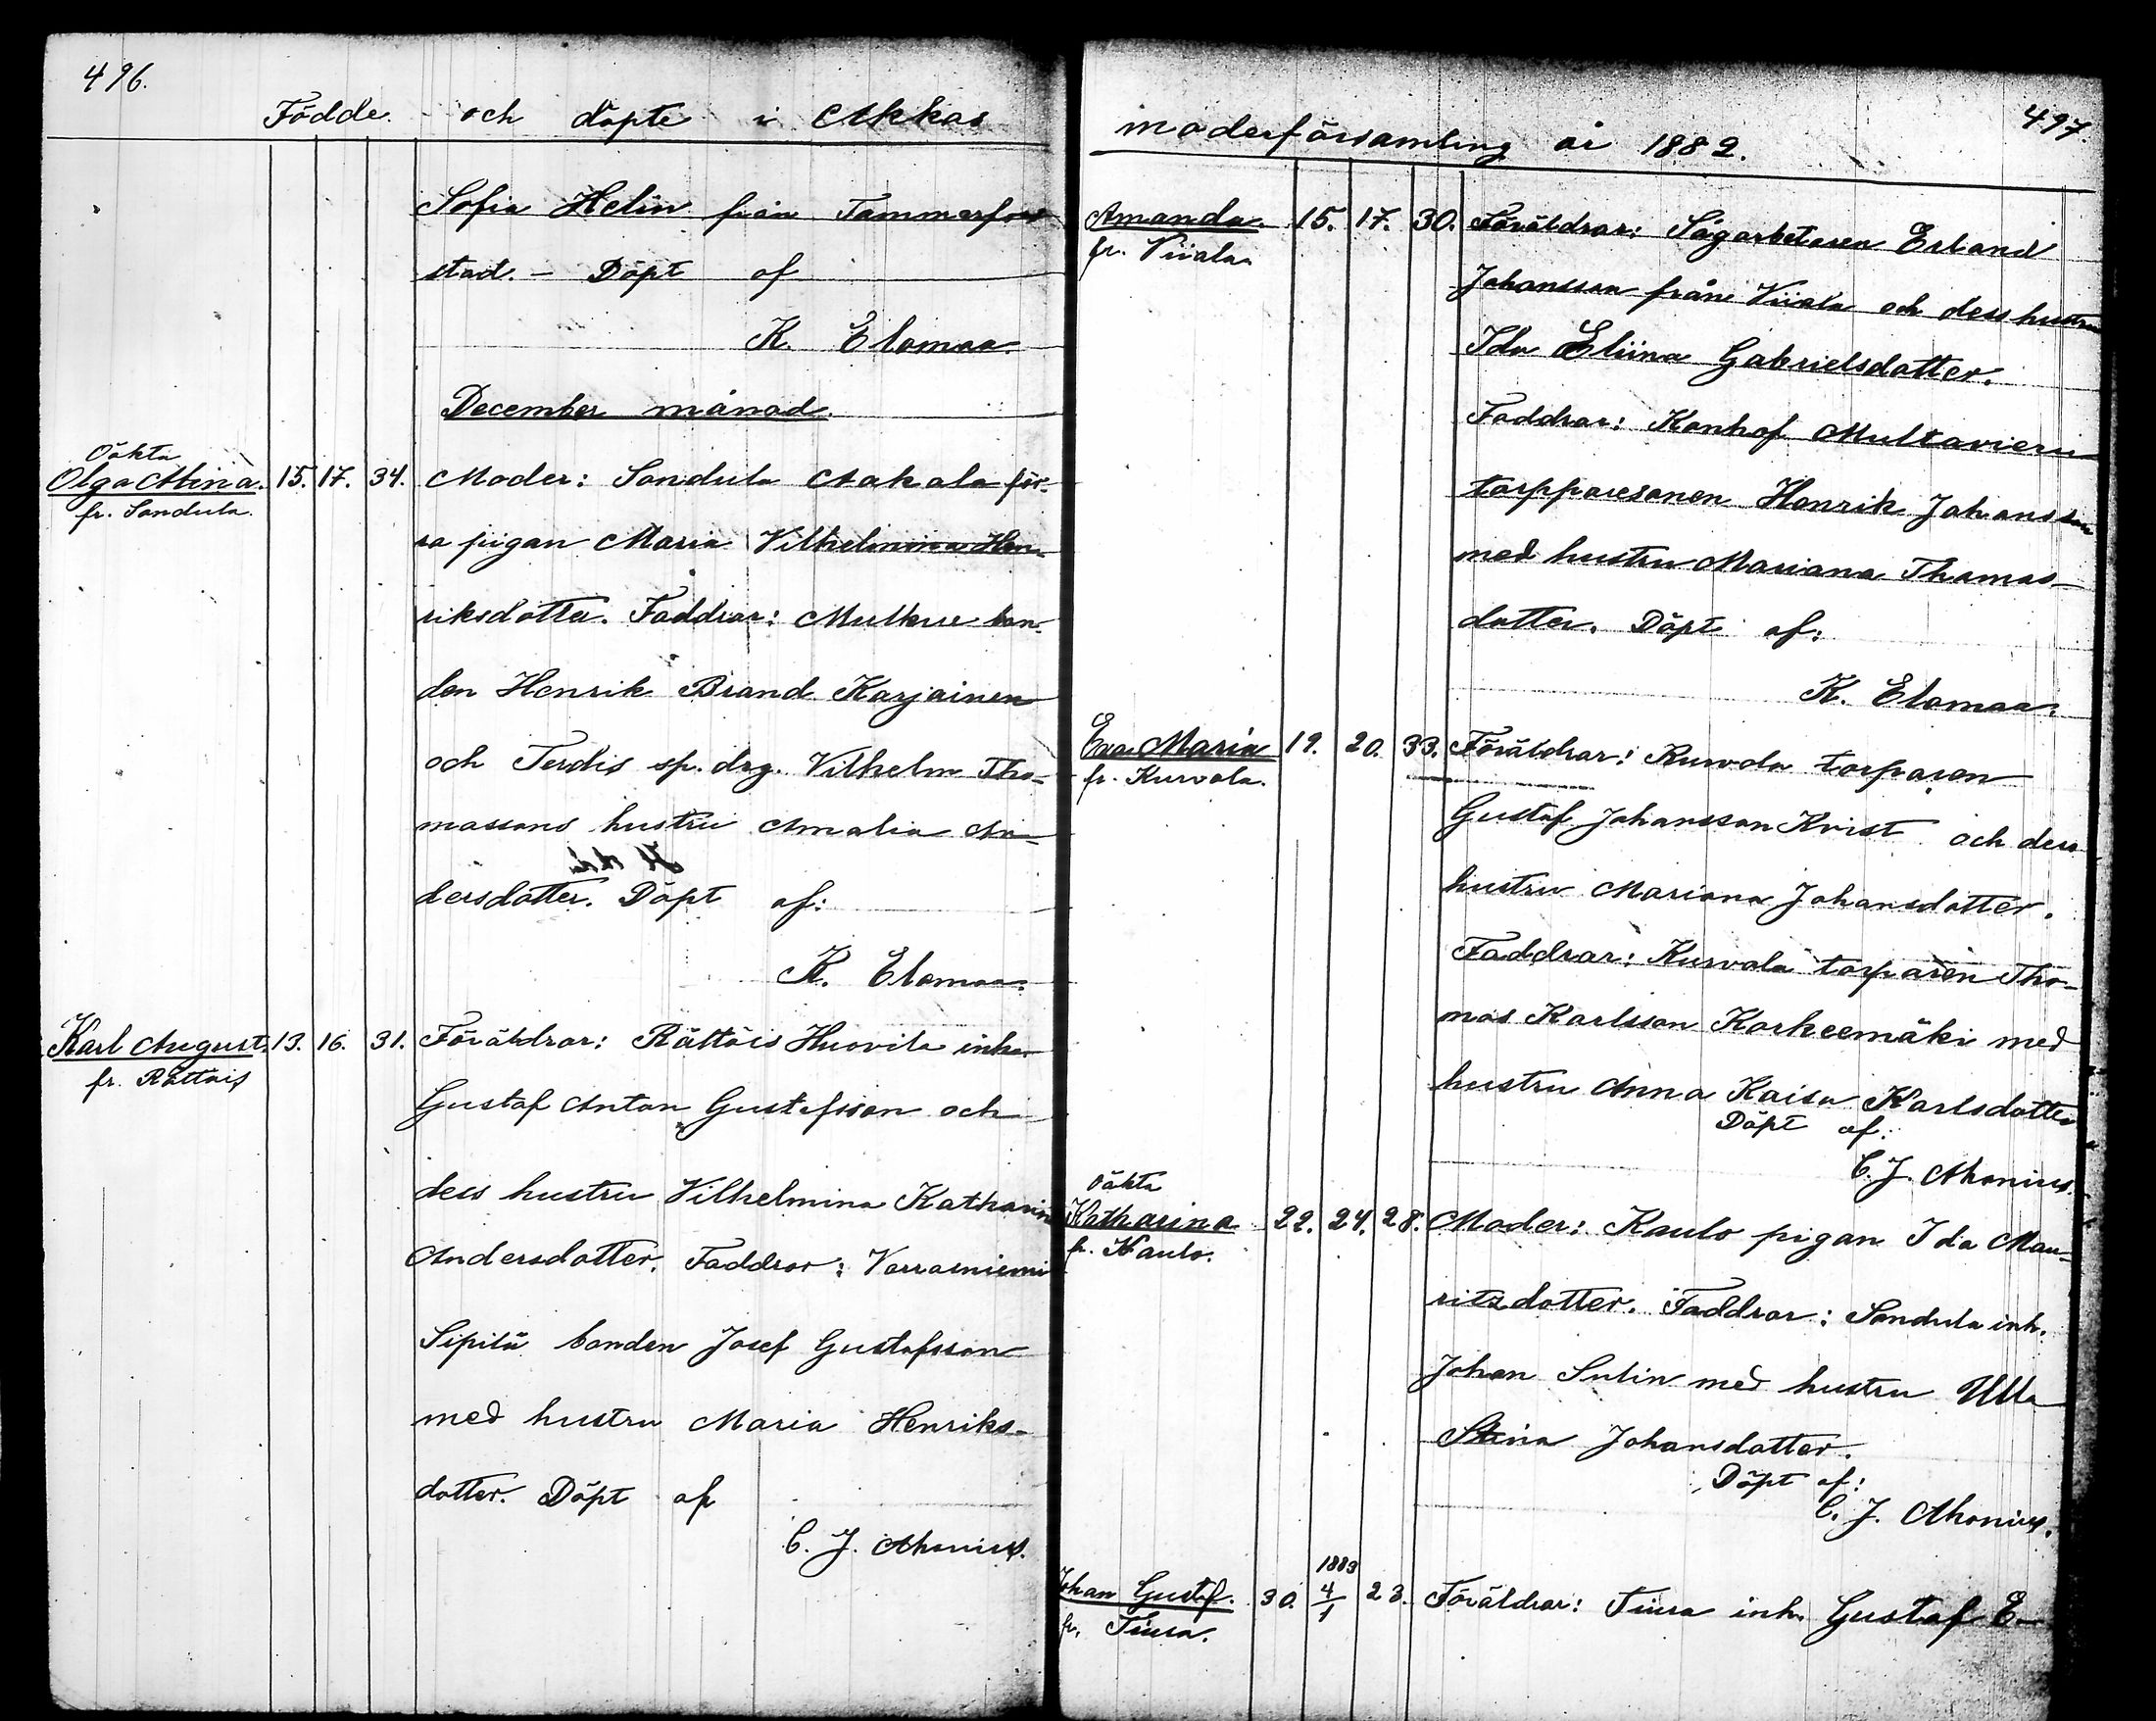 496.
Födde och döpte i Akkas
Sofia Helin från Tammerfors
stad. – Döpt af
K. Elomaa.
December månad.
Oäkta
Olga Mina. 15. 17. 34. Moder: Sondula Aakala för-
fr. Sondula.
ra pigan Maria Vilhelmina Hen-
riksdotter. Faddrar: Mulkue bon-
den Henrik Brand Karjainen
och Terdis sp. drg. Vilhelm Tho-
massons hustru Amalia An-
dersdotter. Döpt af:
K. Elomaa.
Karl August. 13. 16. 31. Föräldrar: Rättöis Huovila inh.
fr. Rättöis
Gustaf Anton Gustafsson och
dess hustru Vilhelmina Katharina
Andersdotter. Faddrar: Varrasniemi
Sipilä bonden Josef Gustafsson
med hustru Maria Henriks-
dotter. Döpt af
C. J. Ahonius.
497.
moderförsamling år 1882.
Amanda. 15. 17. 30. Föräldrar: Sågarbetaren Erland
fr. Viiala.
Johansson från Viiala och dess hustru
Ida Eliina Gabrielsdotter.
Faddrar: Konhof Multavieru
torpparesonen Henrik Johansson
med hustru Mariana Thomas-
dotter. Döpt af:
K. Elomaa.
Eva Maria 19. 20. 33. Föräldrar: Kurvola torparen
fr. Kurvola.
Gustaf Johansson Kvist och dess
hustru Mariana Johansdotter.
Faddrar: Kurvola torparen Tho-
mas Karlsson Korkeemäki med
hustru Anna Kaisa Karlsdotter
Döpt af:
C. J. Ahonius.
oäkta
Katharina 22. 24. 28. Moder: Kaulo pigan Ida Mau-
fr. Kaulo.
ritzdotter. Faddrar: Sondula inh.
Johan Sulin med hustru Ulla
Stina Johansdotter.
Döpt af:
C. J. Ahonius.
1883
Johan Gustaf. 30. 4/1 23. Föräldrar: Tiura inh. Gustaf E-
fr. Tiura.